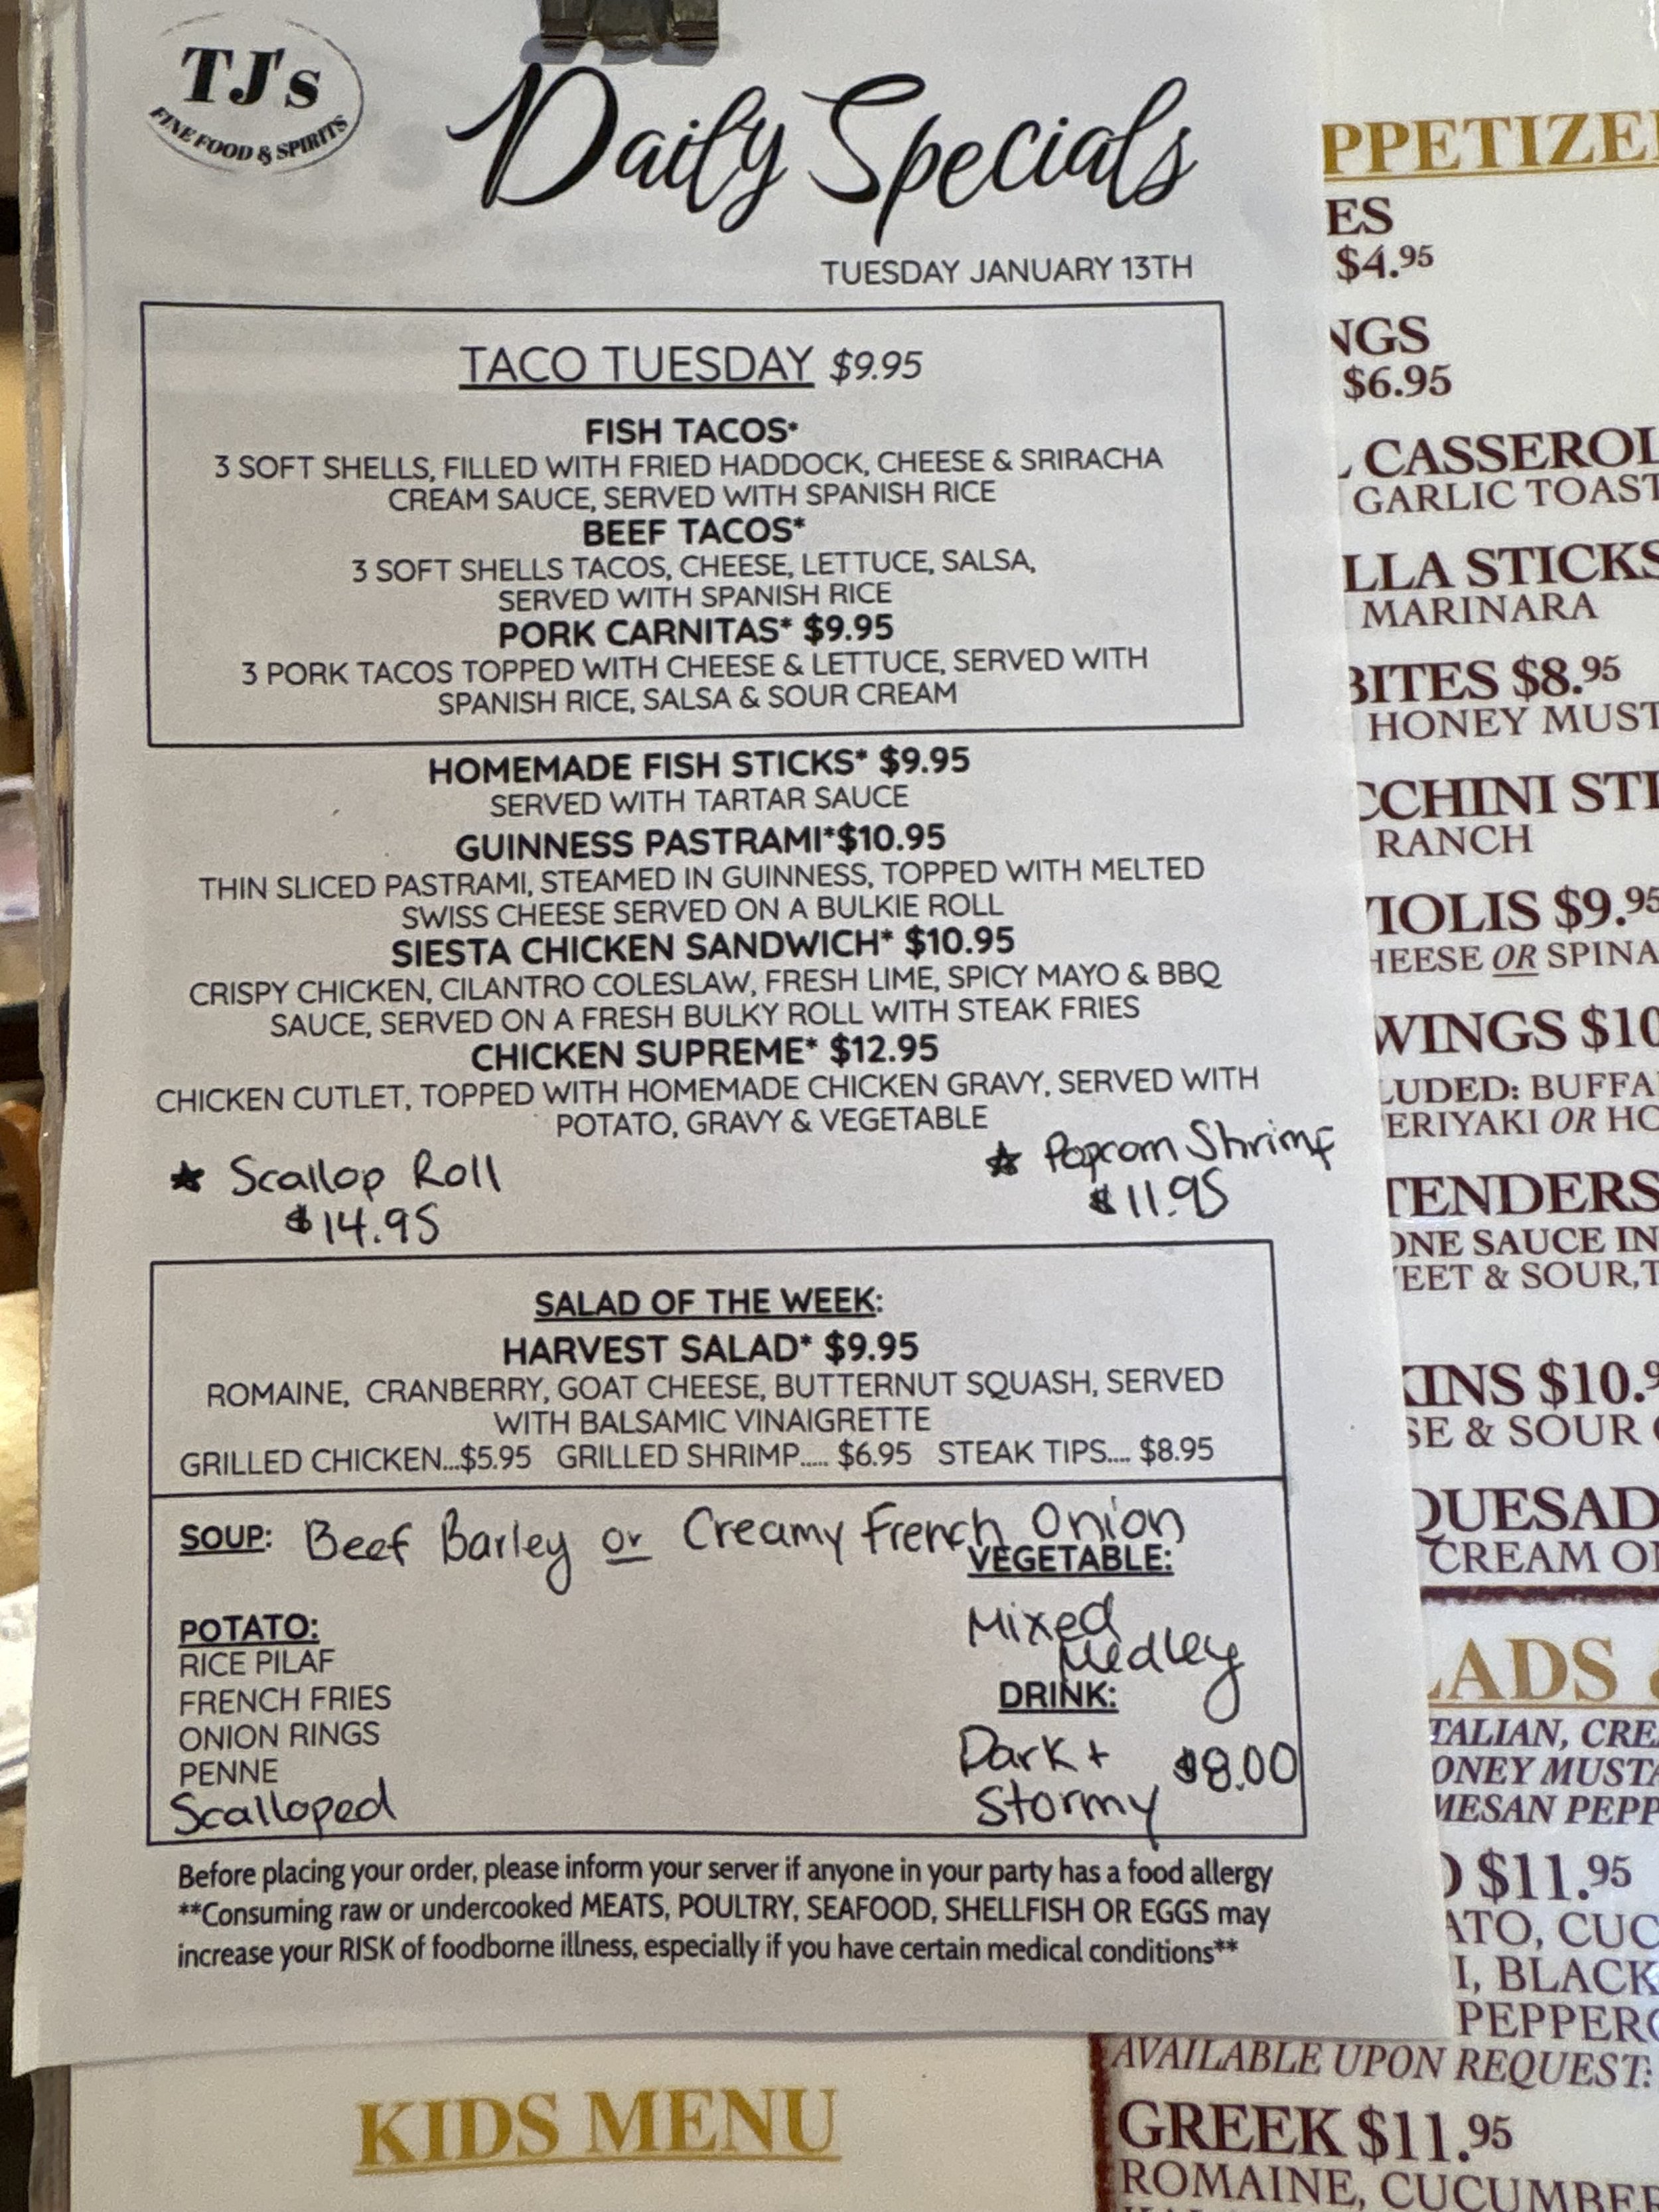 TJ's
FINE FOOD & SPIRITS
Daily Specials
TUESDAY JANUARY 13TH
TACO TUESDAY $9.95
FISH TACOS*
3 SOFT SHELLS, FILLED WITH FRIED HADDOCK, CHEESE & SRIRACHA
CREAM SAUCE, SERVED WITH SPANISH RICE
BEEF TACOS*
3 SOFT SHELLS TACOS, CHEESE, LETTUCE, SALSA,
SERVED WITH SPANISH RICE
PORK CARNITAS* $9.95
3 PORK TACOS TOPPED WITH CHEESE & LETTUCE, SERVED WITH
SPANISH RICE, SALSA & SOUR CREAM
HOMEMADE FISH STICKS* $9.95
SERVED WITH TARTAR SAUCE
GUINNESS PASTRAMI*$10.95
THIN SLICED PASTRAMI, STEAMED IN GUINNESS, TOPPED WITH MELTED
SWISS CHEESE SERVED ON A BULKIE ROLL
SIESTA CHICKEN SANDWICH* $10.95
CRISPY CHICKEN, CILANTRO COLESLAW, FRESH LIME, SPICY MAYO & BBQ
SAUCE, SERVED ON A FRESH BULKY ROLL WITH STEAK FRIES
CHICKEN SUPREME* $12.95
CHICKEN CUTLET, TOPPED WITH HOMEMADE CHICKEN GRAVY, SERVED WITH
POTATO, GRAVY & VEGETABLE
★ Scallop Roll
$14.95
★ Popcorn Shrimp
$11.95
SALAD OF THE WEEK:
HARVEST SALAD* $9.95
ROMAINE, CRANBERRY, GOAT CHEESE, BUTTERNUT SQUASH, SERVED
WITH BALSAMIC VINAIGRETTE
GRILLED CHICKEN...$5.95 GRILLED SHRIMP..... $6.95 STEAK TIPS.... $8.95
SOUP: Beef Barley or Creamy French Onion
POTATO:
RICE PILAF
FRENCH FRIES
ONION RINGS
PENNE
Scalloped
VEGETABLE:
Mixed
Medley
DRINK:
Dark + $8.00
Stormy
Before placing your order, please inform your server if anyone in your party has a food allergy
**Consuming raw or undercooked MEATS, POULTRY, SEAFOOD, SHELLFISH OR EGGS may
increase your RISK of foodborne illness, especially if you have certain medical conditions**
KIDS MENU
PPETIZE
ES
$4.95
NGS
$6.95
CASSEROL
GARLIC TOAST
LLA STICKS
MARINARA
BITES $8.95
HONEY MUST
CCHINI STI
RANCH
IOLIS $9.95
HEESE OR SPINA
WINGS $10
LUDED: BUFFA
ERIYAKI OR HO
TENDERS
ONE SAUCE IN
EET & SOUR, T
KINS $10.9
SE & SOUR
QUESAD
CREAM O
LADS &
TALIAN, CRE
ONEY MUSTA
MESAN PEPP
$11.95
ATO, CUC
I, BLACK
PEPPER
AVAILABLE UPON REQUEST:
GREEK $11.95
ROMAINE, CUCUMBER